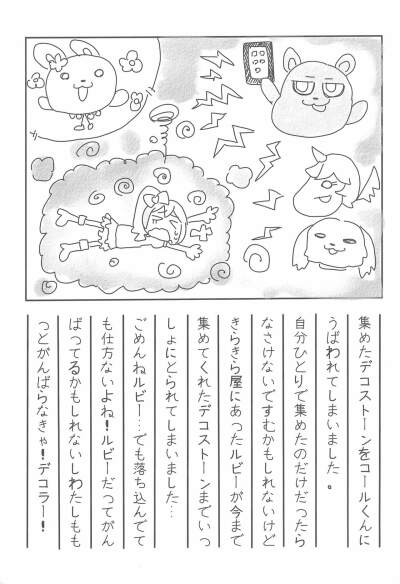 集めたデコストーンをコールくんに
うばわれてしまいました。
自分ひとりで集めたのだけだったら
なさけないですむかもしれないけど
きらきら屋にあったルビーが今まで
集めてくれたデコストーンまでいっ
しょにとられてしまいました…
ごめんねルビー…でも落ち込んでて
も仕方ないよね!ルビーだってがん
ばってるかもしれないしわたしもも
っとがんばらなきゃ!デコラー!